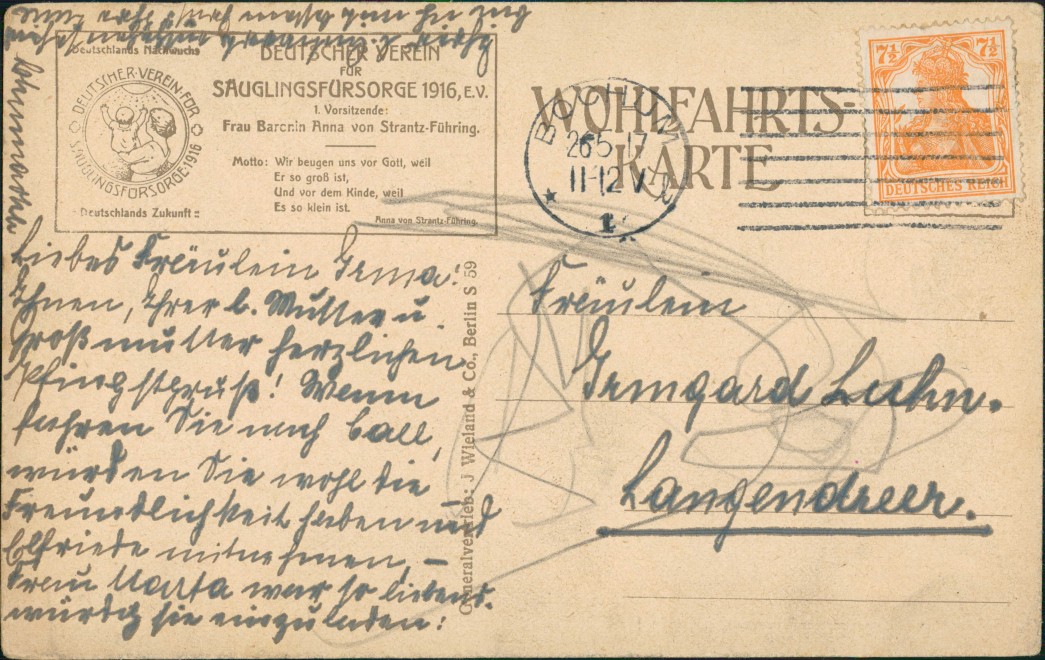 Deutschlands Nachwuchs
DEUTSCHER VEREIN FÜR SÄUGLINGSFÜRSORGE 1916
Deutschlands Zukunft
DEUTSCHER VEREIN
FÜR
SÄUGLINGSFÜRSORGE 1916, E.V.
1. Vorsitzende:
Frau Baronin Anna von Strantz-Führing.
Motto: Wir beugen uns vor Gott, weil
Er so groß ist,
Und vor dem Kinde, weil
Es so klein ist.
Anna von Strantz-Führing.
WOHLFAHRTS-
KARTE
BOCHUM
26.5.17
11-12 V
1
7½ 7½
DEUTSCHES REICH
Liebes Fräulein Irma!
Ihnen, Ihrer l. Mutter u.
Großmutter herzlichen
Pfingstgruß! Wenn
fahren Sie nach
würden Sie wohl die
Freundlichkeit haben und
Elfriede mitnehmen, –
Frau war so liebens-
würdig sie einzuladen:
Generalvertrieb: J Wieland & Co., Berlin S 59
Fräulein
Irmgard Luhn.
Langendreer.